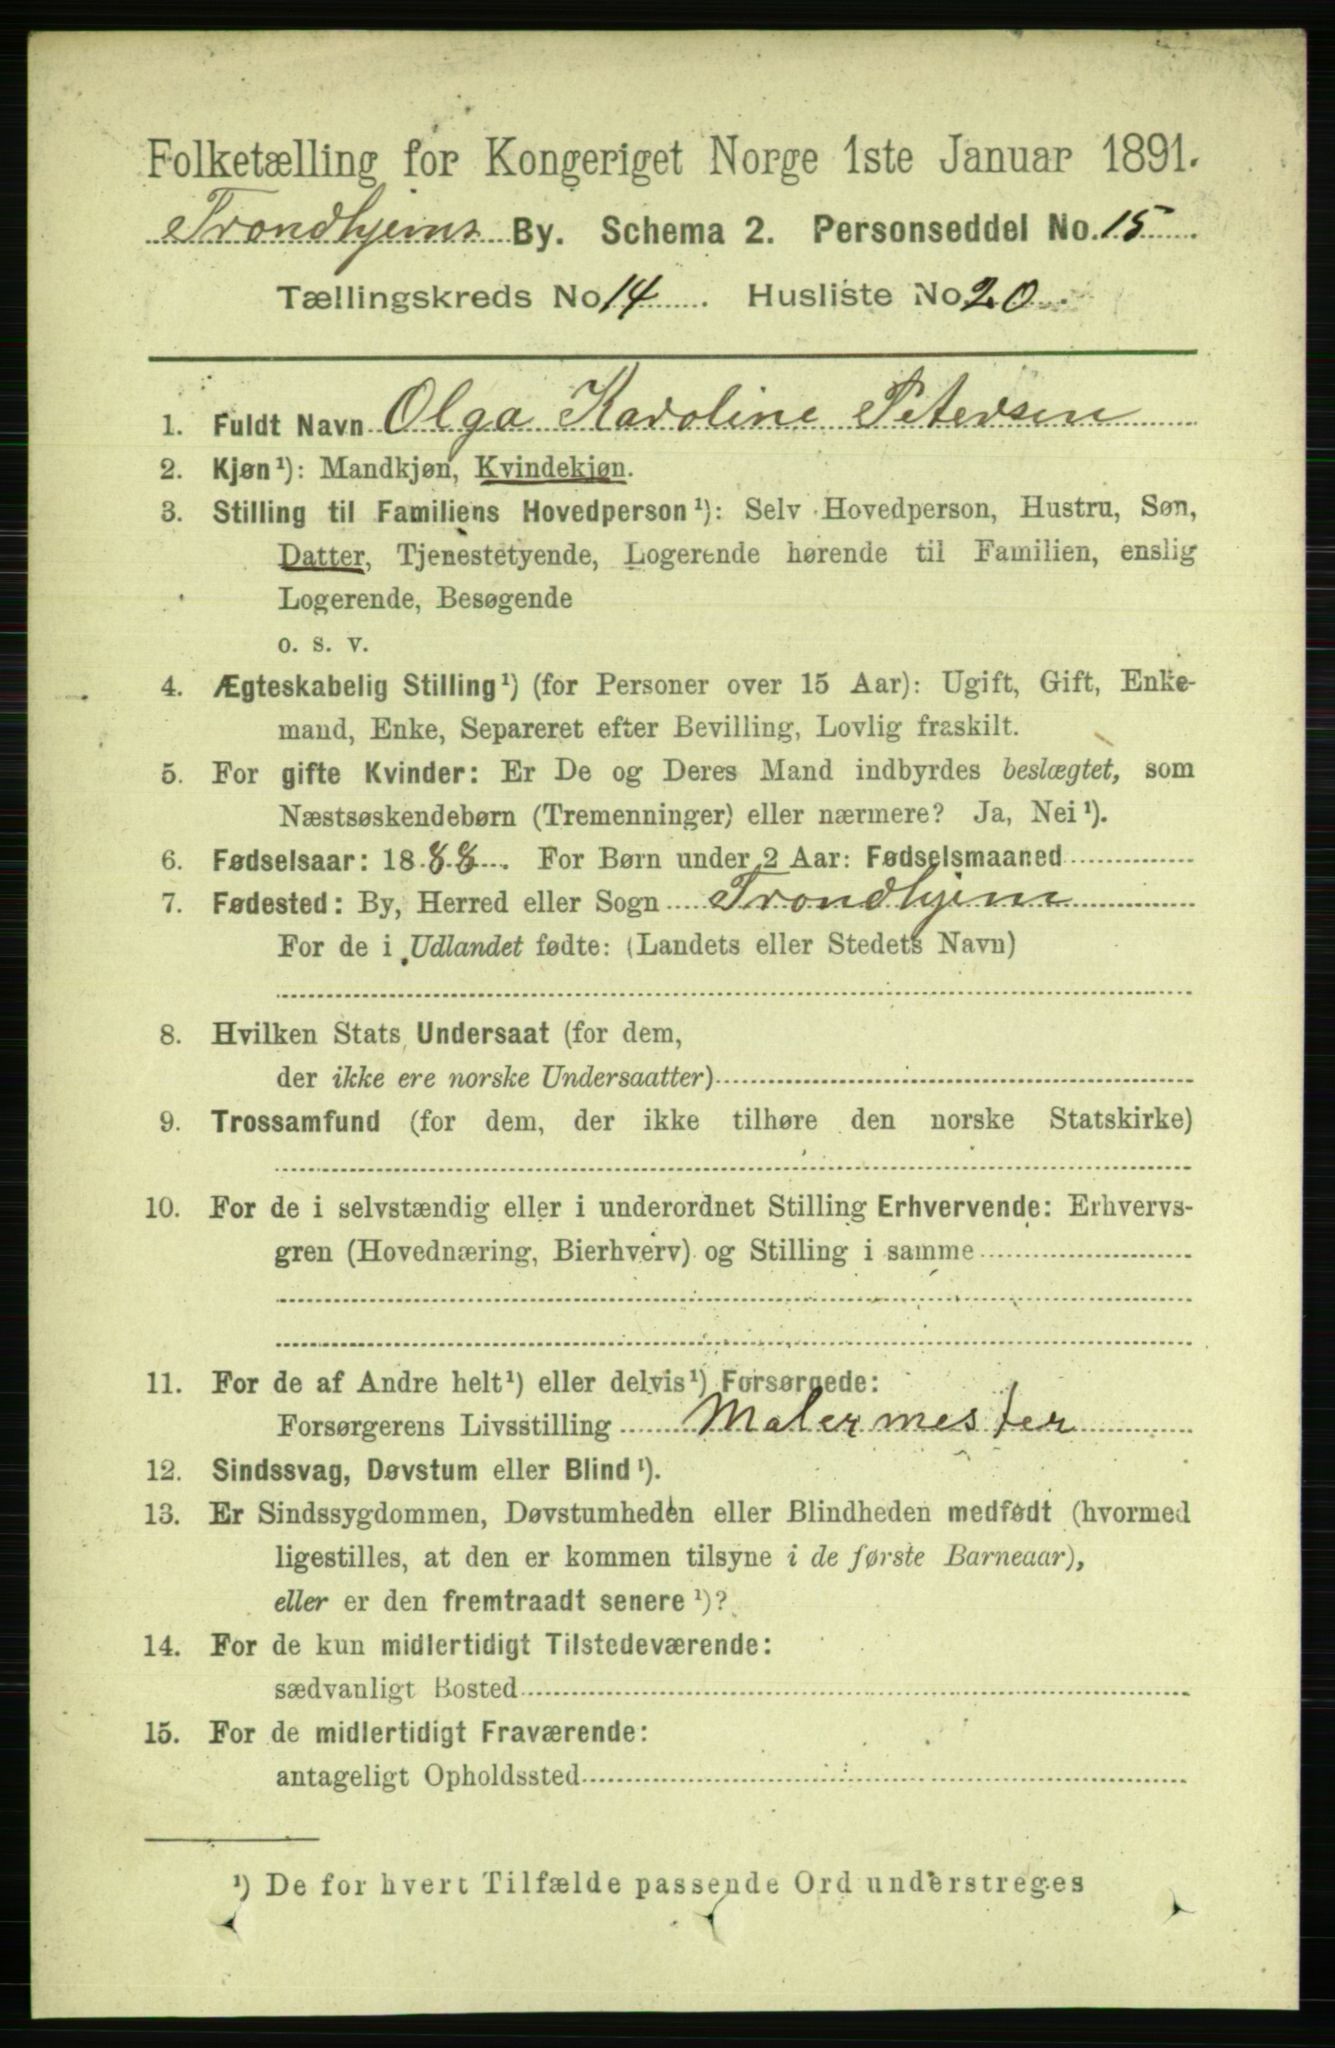 Folketælling for Kongeriget Norge 1ste Januar 1891.
Trondhjems By. Schema 2. Personseddel No. 15
Tællingskreds No 14. Husliste No 20.
1. Fuldt Navn Olga Karoline Petersen
2. Kjøn¹): Mandkjøn, Kvindekjøn.
3. Stilling til Familiens Hovedperson¹): Selv Hovedperson, Hustru, Søn,
Datter, Tjenestetyende, Logerende hørende til Familien, enslig
Logerende, Besøgende
o. s. v.
4. Ægteskabelig Stilling¹) (for Personer over 15 Aar): Ugift, Gift, Enke-
mand, Enke, Separeret efter Bevilling, Lovlig fraskilt.
5. For gifte Kvinder: Er De og Deres Mand indbyrdes beslægtet, som
Næstsøskendebørn (Tremenninger) eller nærmere? Ja, Nei¹).
6. Fødselsaar: 1888. For Børn under 2 Aar: Fødselsmaaned
7. Fødested: By, Herred eller Sogn Trondhjem
For de i Udlandet fødte: (Landets eller Stedets Navn)
8. Hvilken Stats Undersaat (for dem,
der ikke ere norske Undersaatter)
9. Trossamfund (for dem, der ikke tilhøre den norske Statskirke)
10. For de i selvstændig eller i underordnet Stilling Erhvervende: Erhvervs-
gren (Hovednæring, Bierhverv) og Stilling i samme
11. For de af Andre helt¹) eller delvis¹) Forsørgede:
Forsørgerens Livsstilling Malermester
12. Sindssvag, Døvstum eller Blind¹).
13. Er Sindssygdommen, Døvstumheden eller Blindheden medfødt (hvormed
ligestilles, at den er kommen tilsyne i de første Barneaar),
eller er den fremtraadt senere¹)?
14. For de kun midlertidigt Tilstedeværende:
sædvanligt Bosted
15. For de midlertidigt Fraværende:
antageligt Opholdssted
¹) De for hvert Tilfælde passende Ord understreges